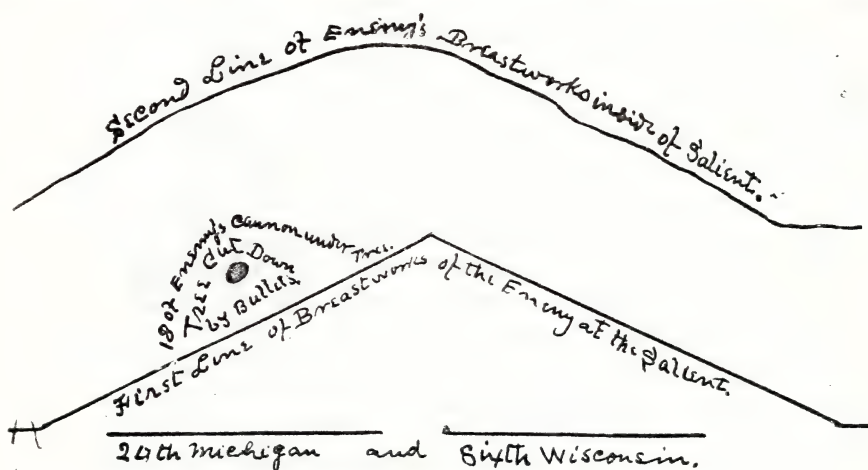 Second Line of Enemy's Breastworks inside of Salient.
18 of Enemy's Cannon under Tree.
Tree Cut Down
by Bullets
First Line of Breastworks of the Enemy at the Salient.
24th Michigan and Sixth Wisconsin.